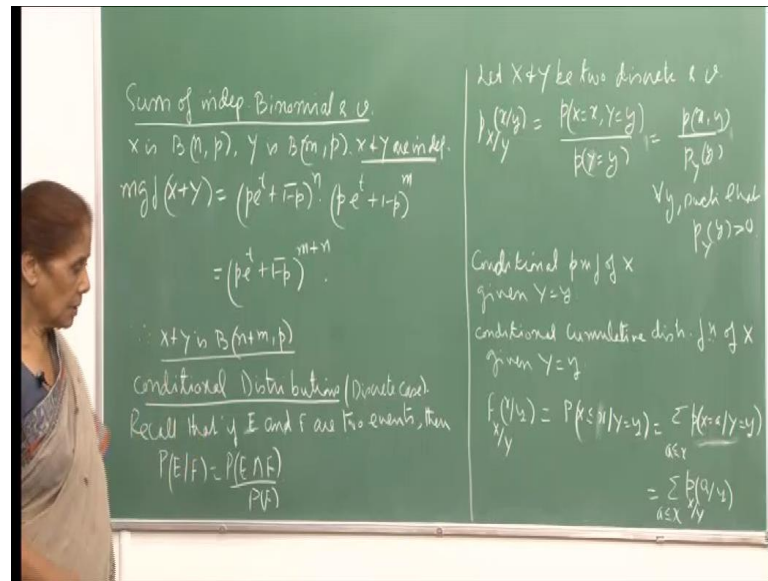 Sum of indep. Binomial r.v.
X is B(n, p), Y is B(m, p). X & Y are indep.
mgf (X+Y) = (pe^t + 1-p)^n . (pe^t + 1-p)^m
= (pe^t + 1-p)^{m+n} .
∴ X+Y is B(n+m, p)
Conditional Distributions (Discrete case).
Recall that if E and F are two events, then
P(E/F) = P(E ∩ F) / P(F)
Let X & Y be two discrete r.v.
p_{X/Y}(x/y) = p(X=x, Y=y) / p(Y=y) = p(x,y) / p_Y(y),
∀ y, such that
p_Y(y) > 0
Conditional pmf of X
given Y=y.
Conditional Cumulative dist. f.n of X
given Y=y
F_{X/Y}(x/y) = P(X≤x/Y=y) = Σ_{a≤x} p(X=a/Y=y)
= Σ_{a≤x} p_{X/Y}(a/y)